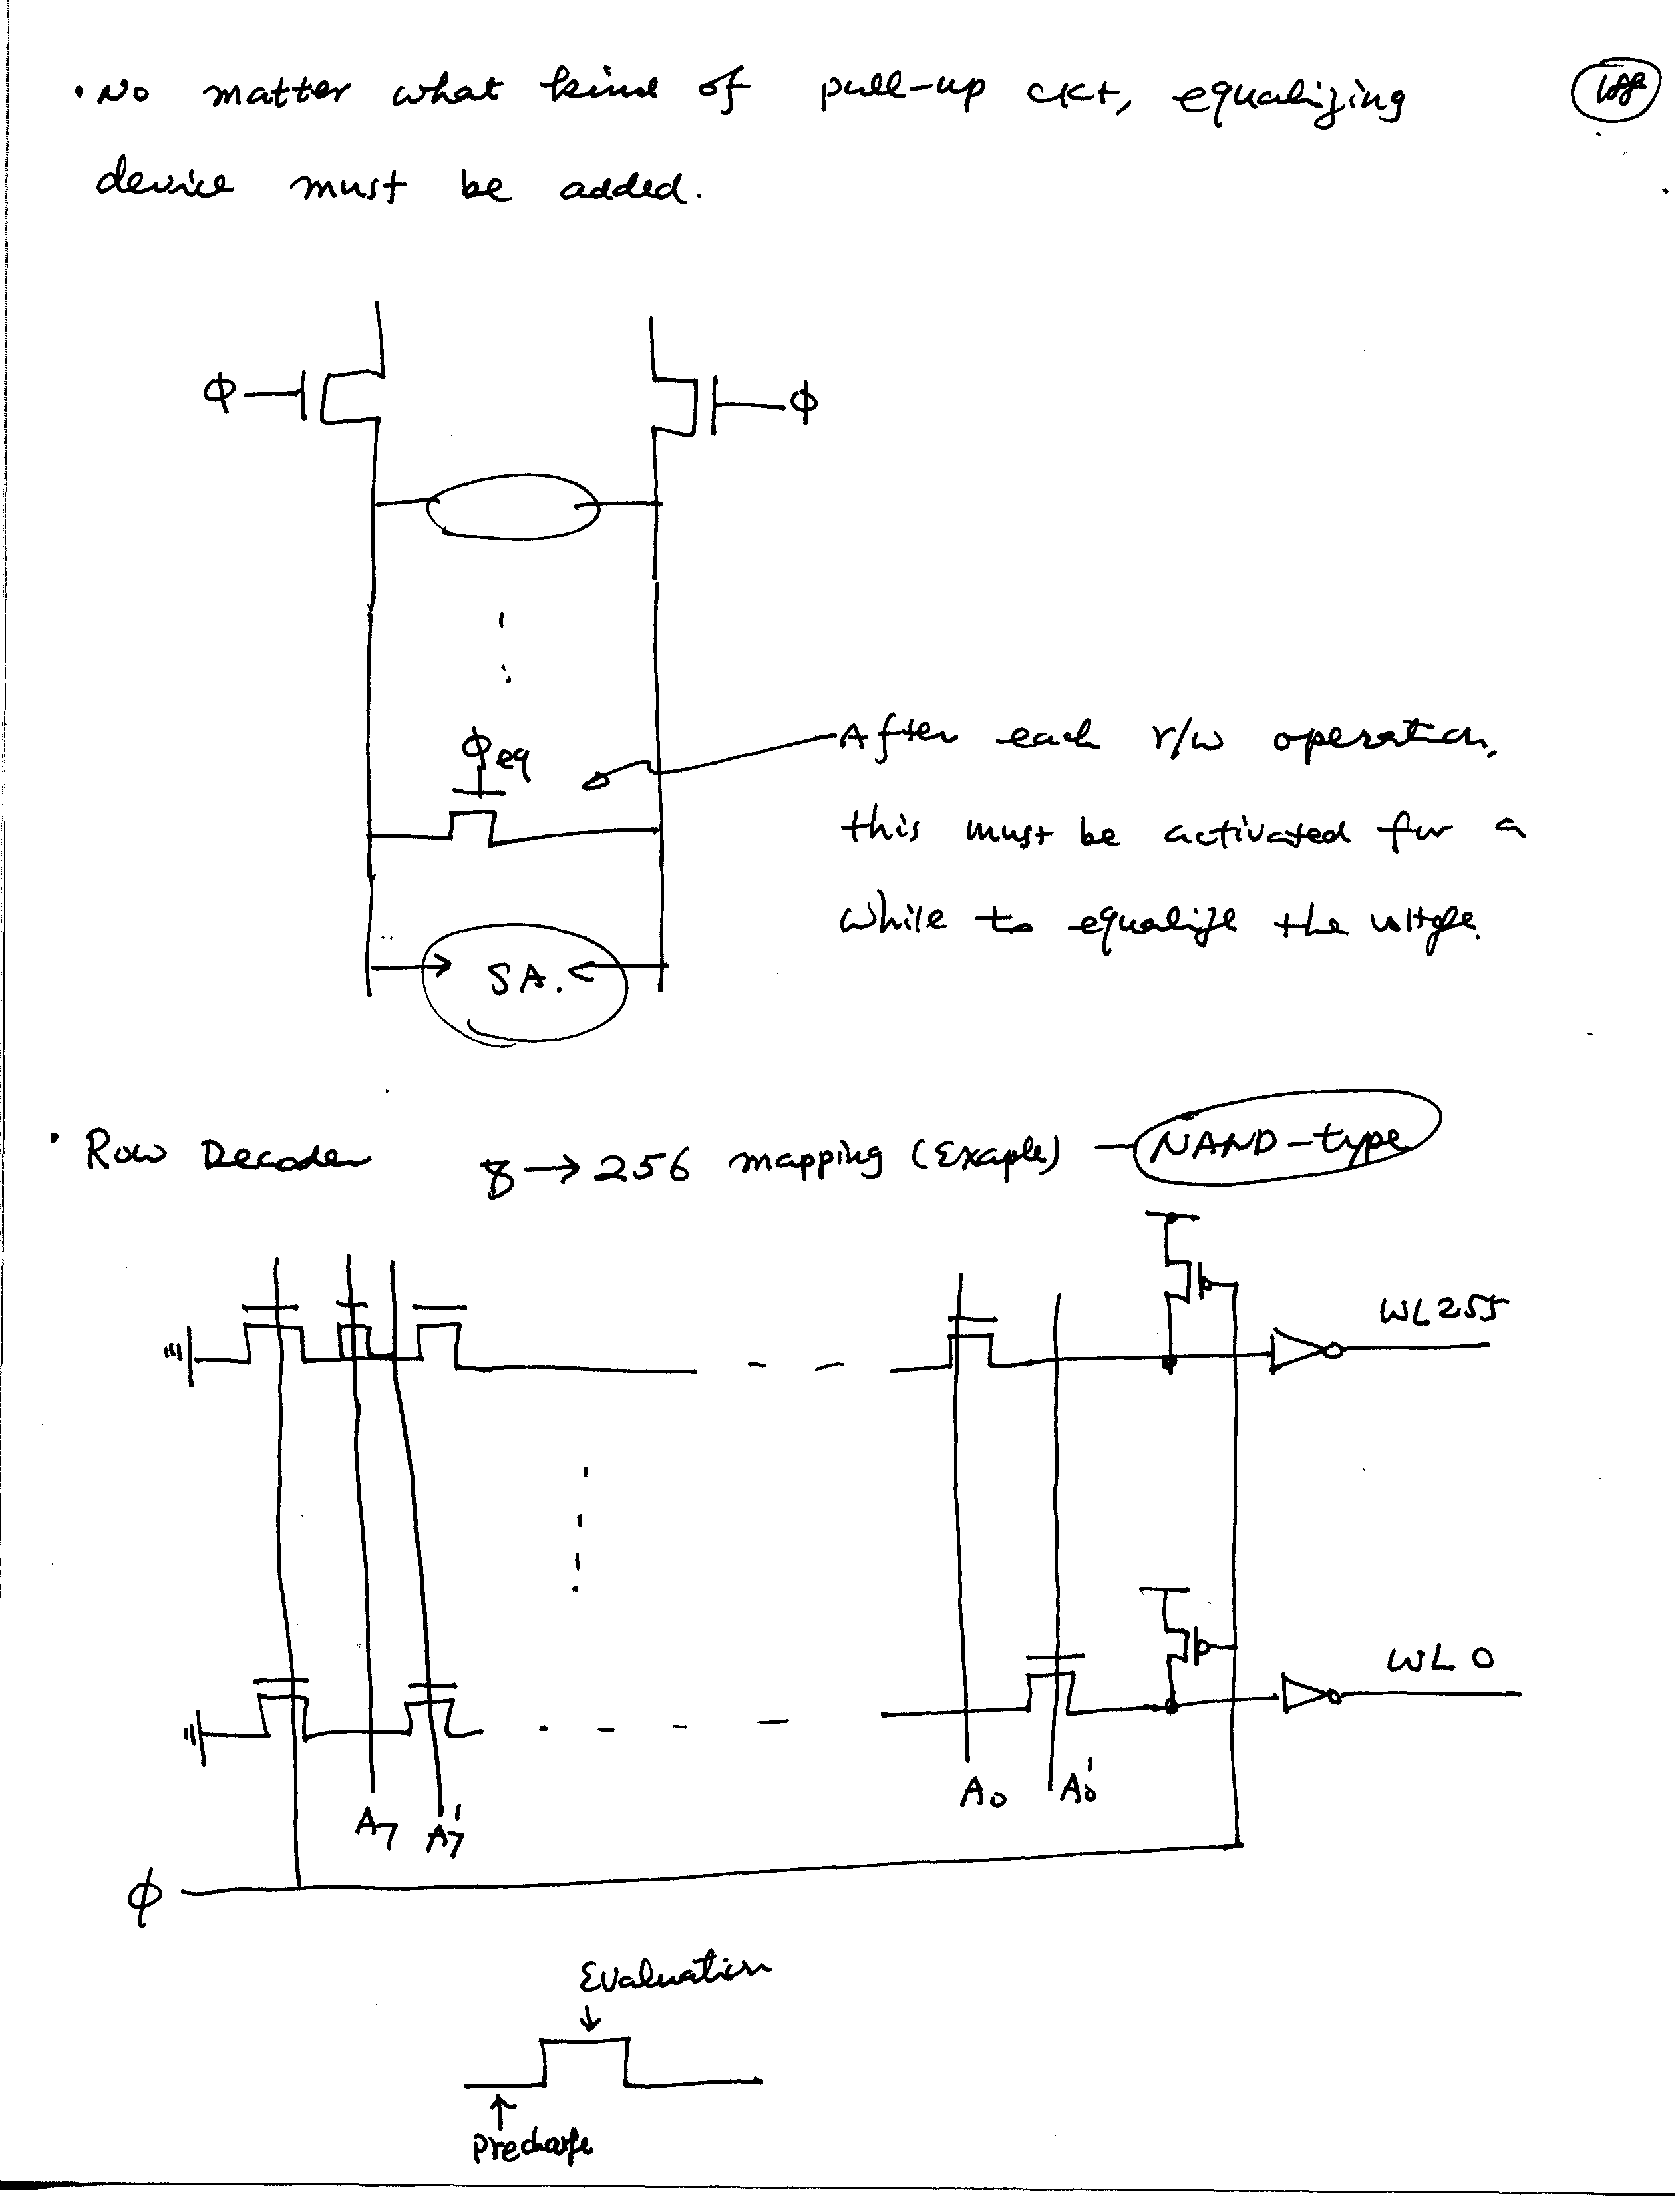 · No matter what kind of pull-up ckt, equalizing
device must be added.
Φ
Φ
Φeq
After each r/w operation,
this must be activated for a
while to equalize the voltge.
SA.
· Row Decoder 8 → 256 mapping (Exaple) — NAND-type
WL255
WL0
A7 A7' A0 A0'
Φ
Evaluation
Precharge